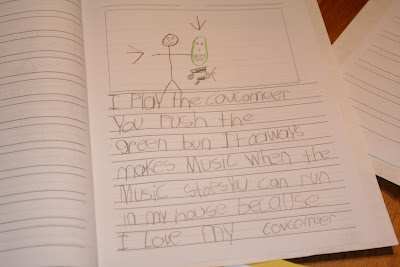 I Play the coucomuer
You Push the
green bun It aoways
makes Music when the
Music stops You can run
in my house because
I Love my coucomeer